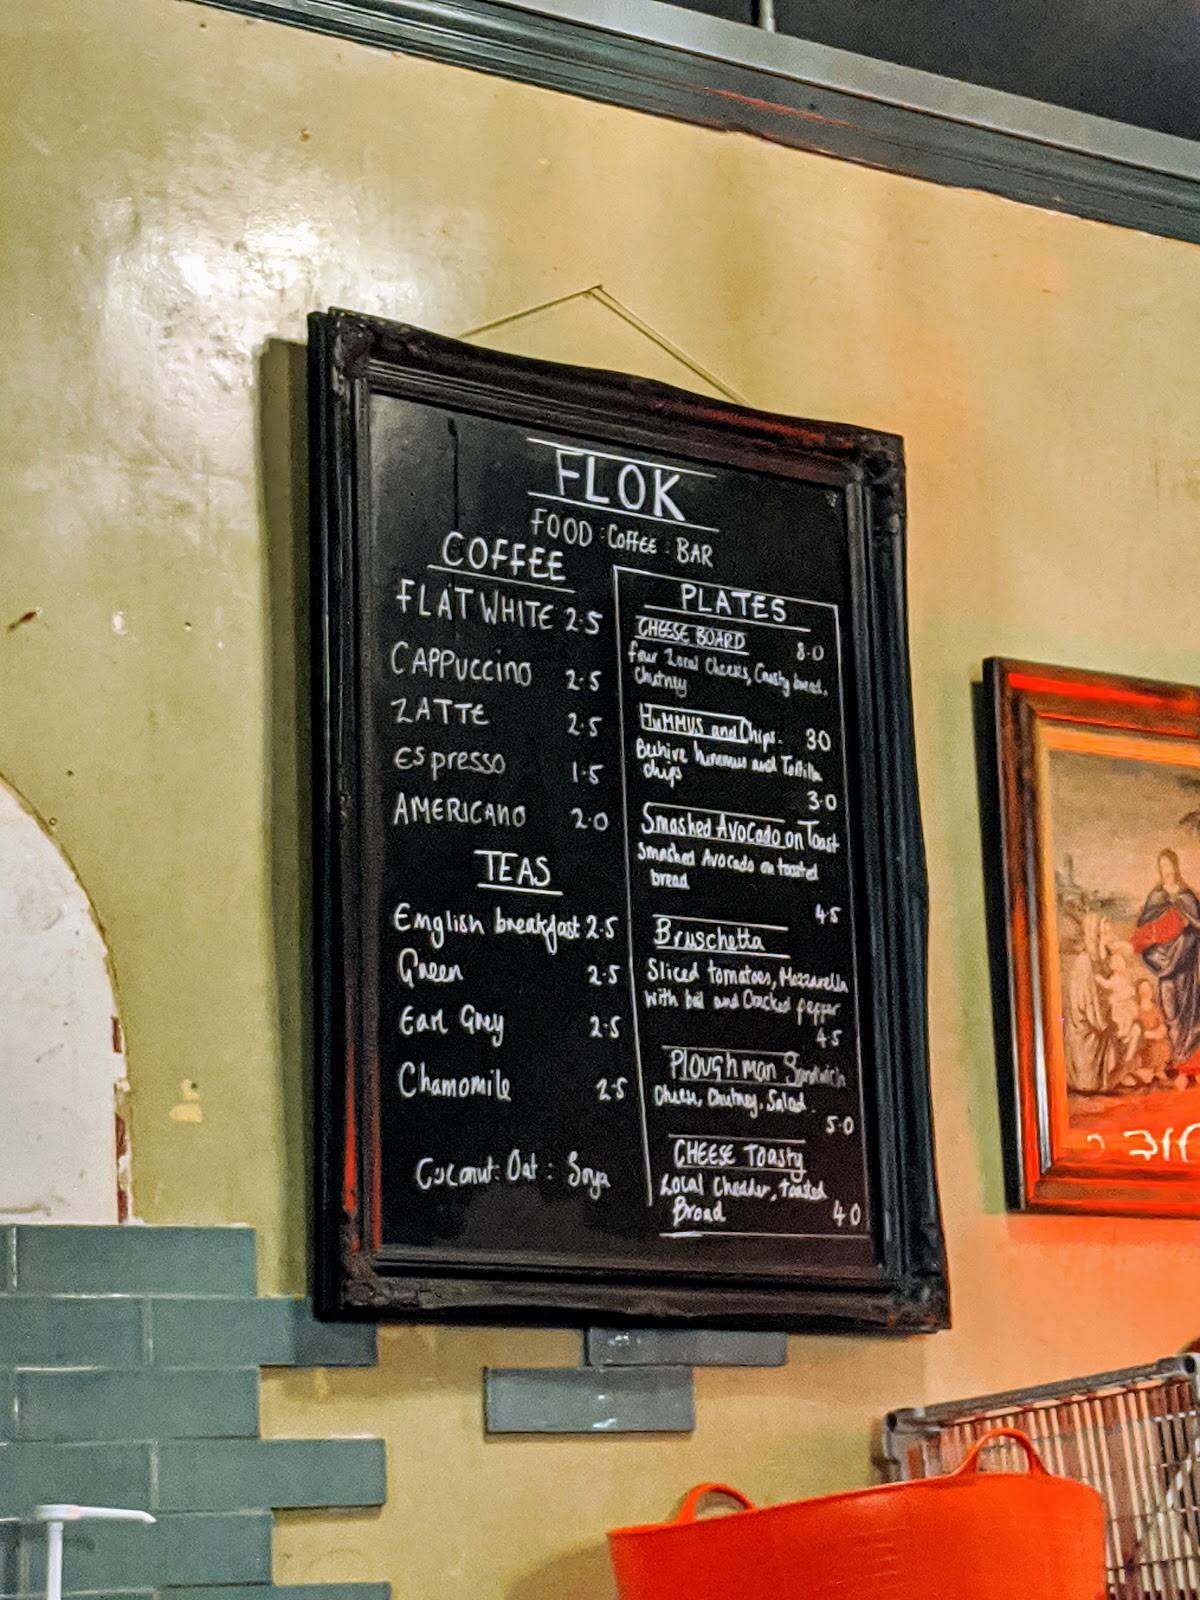 FLOK
FOOD : Coffee : BAR
COFFEE
FLAT WHITE 2.5
CAPPuccino 2.5
LATTE 2.5
Espresso 1.5
AMERICANO 2.0
TEAS
English breakfast 2.5
Green 2.5
Earl Grey 2.5
Chamomile 2.5
Coconut : Oat : Soya
PLATES
CHEESE BOARD 8.0
four Local Cheeses, Crusty bread,
Chutney
HuMMUS and Chips. 30
Beehive hummus and Tortilla
chips
3.0
Smashed AVOCado on Toast
Smashed Avocado on toasted
bread
4.5
Bruschetta
Sliced tomatoes, Mozzarella
with and Cracked pepper
4.5
Ploughman Sandwich
Cheese, Chutney, Salad.
5.0
CHEESE Toasty
Local Chedder, toasted
Bread 4.0